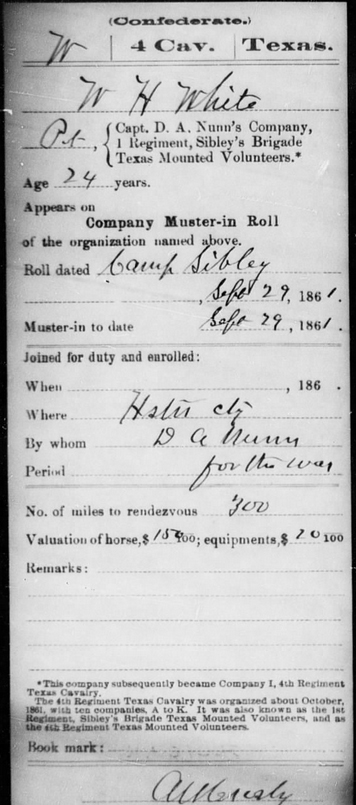 (Confederate.)
W | 4 Cav. | Texas.
W H White
Pvt, { Capt. D. A. Nunn's Company,
1 Regiment, Sibley's Brigade
Texas Mounted Volunteers.*
Age 24 years.
Appears on
Company Muster-in Roll
of the organization named above.
Roll dated Camp Sibley
, Sept 29, 1861.
Muster-in to date Sept 29, 1861.
Joined for duty and enrolled:
When , 186 .
Where
By whom D A Nunn
Period for the war
No. of miles to rendezvous 300
Valuation of horse, $ 150/100; equipments, $ 20/100
Remarks:
*This company subsequently became Company I, 4th Regiment
Texas Cavalry.
The 4th Regiment Texas Cavalry was organized about October,
1861, with ten companies, A to K. It was also known as the 1st
Regiment, Sibley's Brigade Texas Mounted Volunteers, and as
the 4th Regiment Texas Mounted Volunteers.
Book mark: